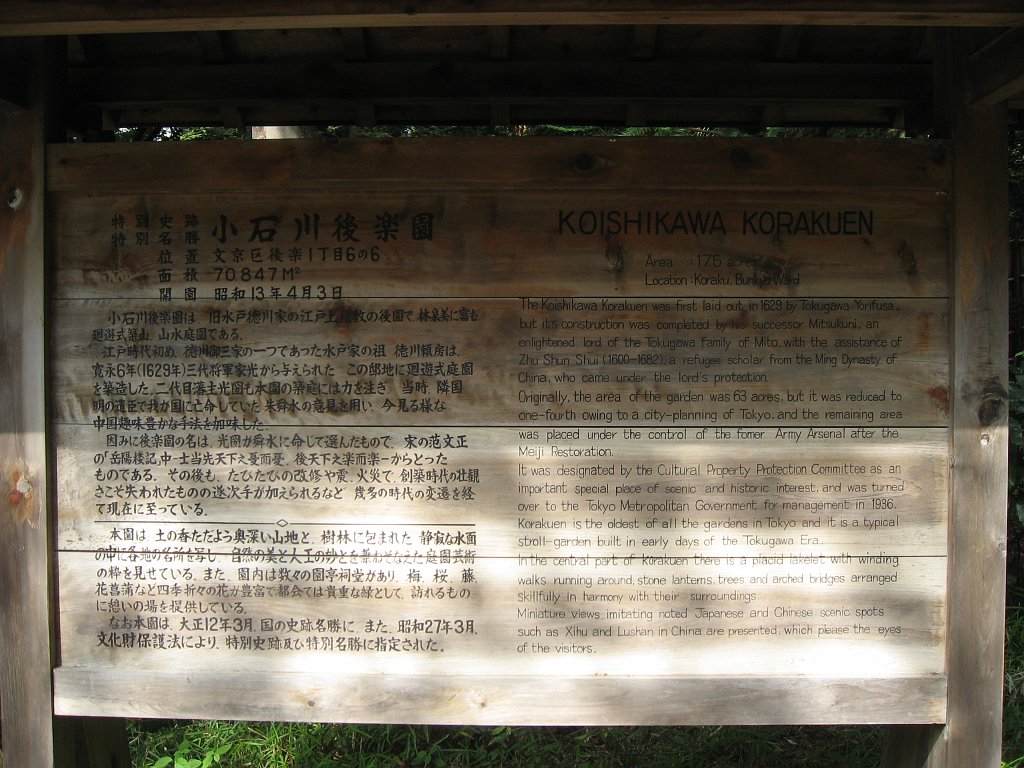 特別史跡
特別名勝
小石川後楽園
位置 文京区後楽1丁目6の6
面積 70.847M²
開園 昭和13年4月3日
小石川後楽園は 旧水戸徳川家の江戸上屋敷の後園で 林泉美に富む
廻遊式築山、山水庭園である。
江戸時代初め、徳川御三家の一つであった水戸家の祖 徳川頼房は、
寛永6年(1629年)三代将軍家光から与えられた この邸地に廻遊式庭園
を築造した。二代目藩主光圀も本園の築庭には力を注ぎ、当時、隣国
明の遺臣で我が国に亡命していた朱舜水の意見を用い、今見る様な
中国趣味豊かな手法を加味した。
因みに後楽園の名は、光圀が舜水に命じて選んだもので、宋の范文正
の「岳陽楼記」中-士当先天下之憂而憂、後天下之楽而楽-からとった
ものである。その後も、たびたびの改修や震、火災で、創築時代の壮観
さこそ失われたものの逐次手が加えられるなど 幾多の時代の変遷を経
て現在に至っている。
本園は、土の香ただよう奥深い山地と、樹林に包まれた 静寂な水面
の中に各地の名所を写し、自然の美と人工の妙とを兼ねそなえた庭園芸術
の粋を見せている。また、園内は数々の園亭祠堂があり、梅、桜、藤、
花菖蒲など四季折々の花が豊富で都会では貴重な緑として、訪れるもの
に憩いの場を提供している。
なお本園は、大正12年3月、国の史跡名勝に、また、昭和27年3月、
文化財保護法により、特別史跡及び特別名勝に指定された。
KOISHIKAWA KORAKUEN
Area : 17.5 acres
Location : Koraku, Bunkyo Ward
The Koishikawa Korakuen was first laid out in 1629 by Tokugawa Yorifusa,
but it's construction was completed by his successor Mitsukuni, an
enlightened lord of the Tokugawa family of Mito, with the assistance of
Zhu Shun Shui (1600-1682), a refugee scholar from the Ming Dynasty of
China, who came under the lord's protection.
Originally, the area of the garden was 63 acres, but it was reduced to
one-fourth owing to a city-planning of Tokyo, and the remaining area
was placed under the control of the fomer Army Arsenal after the
Meiji Restoration.
It was designated by the Cultural Property Protection Committee as an
important special place of scenic and historic interest, and was turned
over to the Tokyo Metropolitan Government for management in 1936.
Korakuen is the oldest of all the gardens in Tokyo and it is a typical
stroll-garden built in early days of the Tokugawa Era.
In the central part of Korakuen there is a placid lakelet with winding
walks running around, stone lanterns, trees and arched bridges arranged
skillfully in harmony with their surroundings.
Miniature views imitating noted Japanese and Chinese scenic spots
such as Xihu and Lushan in China are presented, which please the eyes
of the visitors.